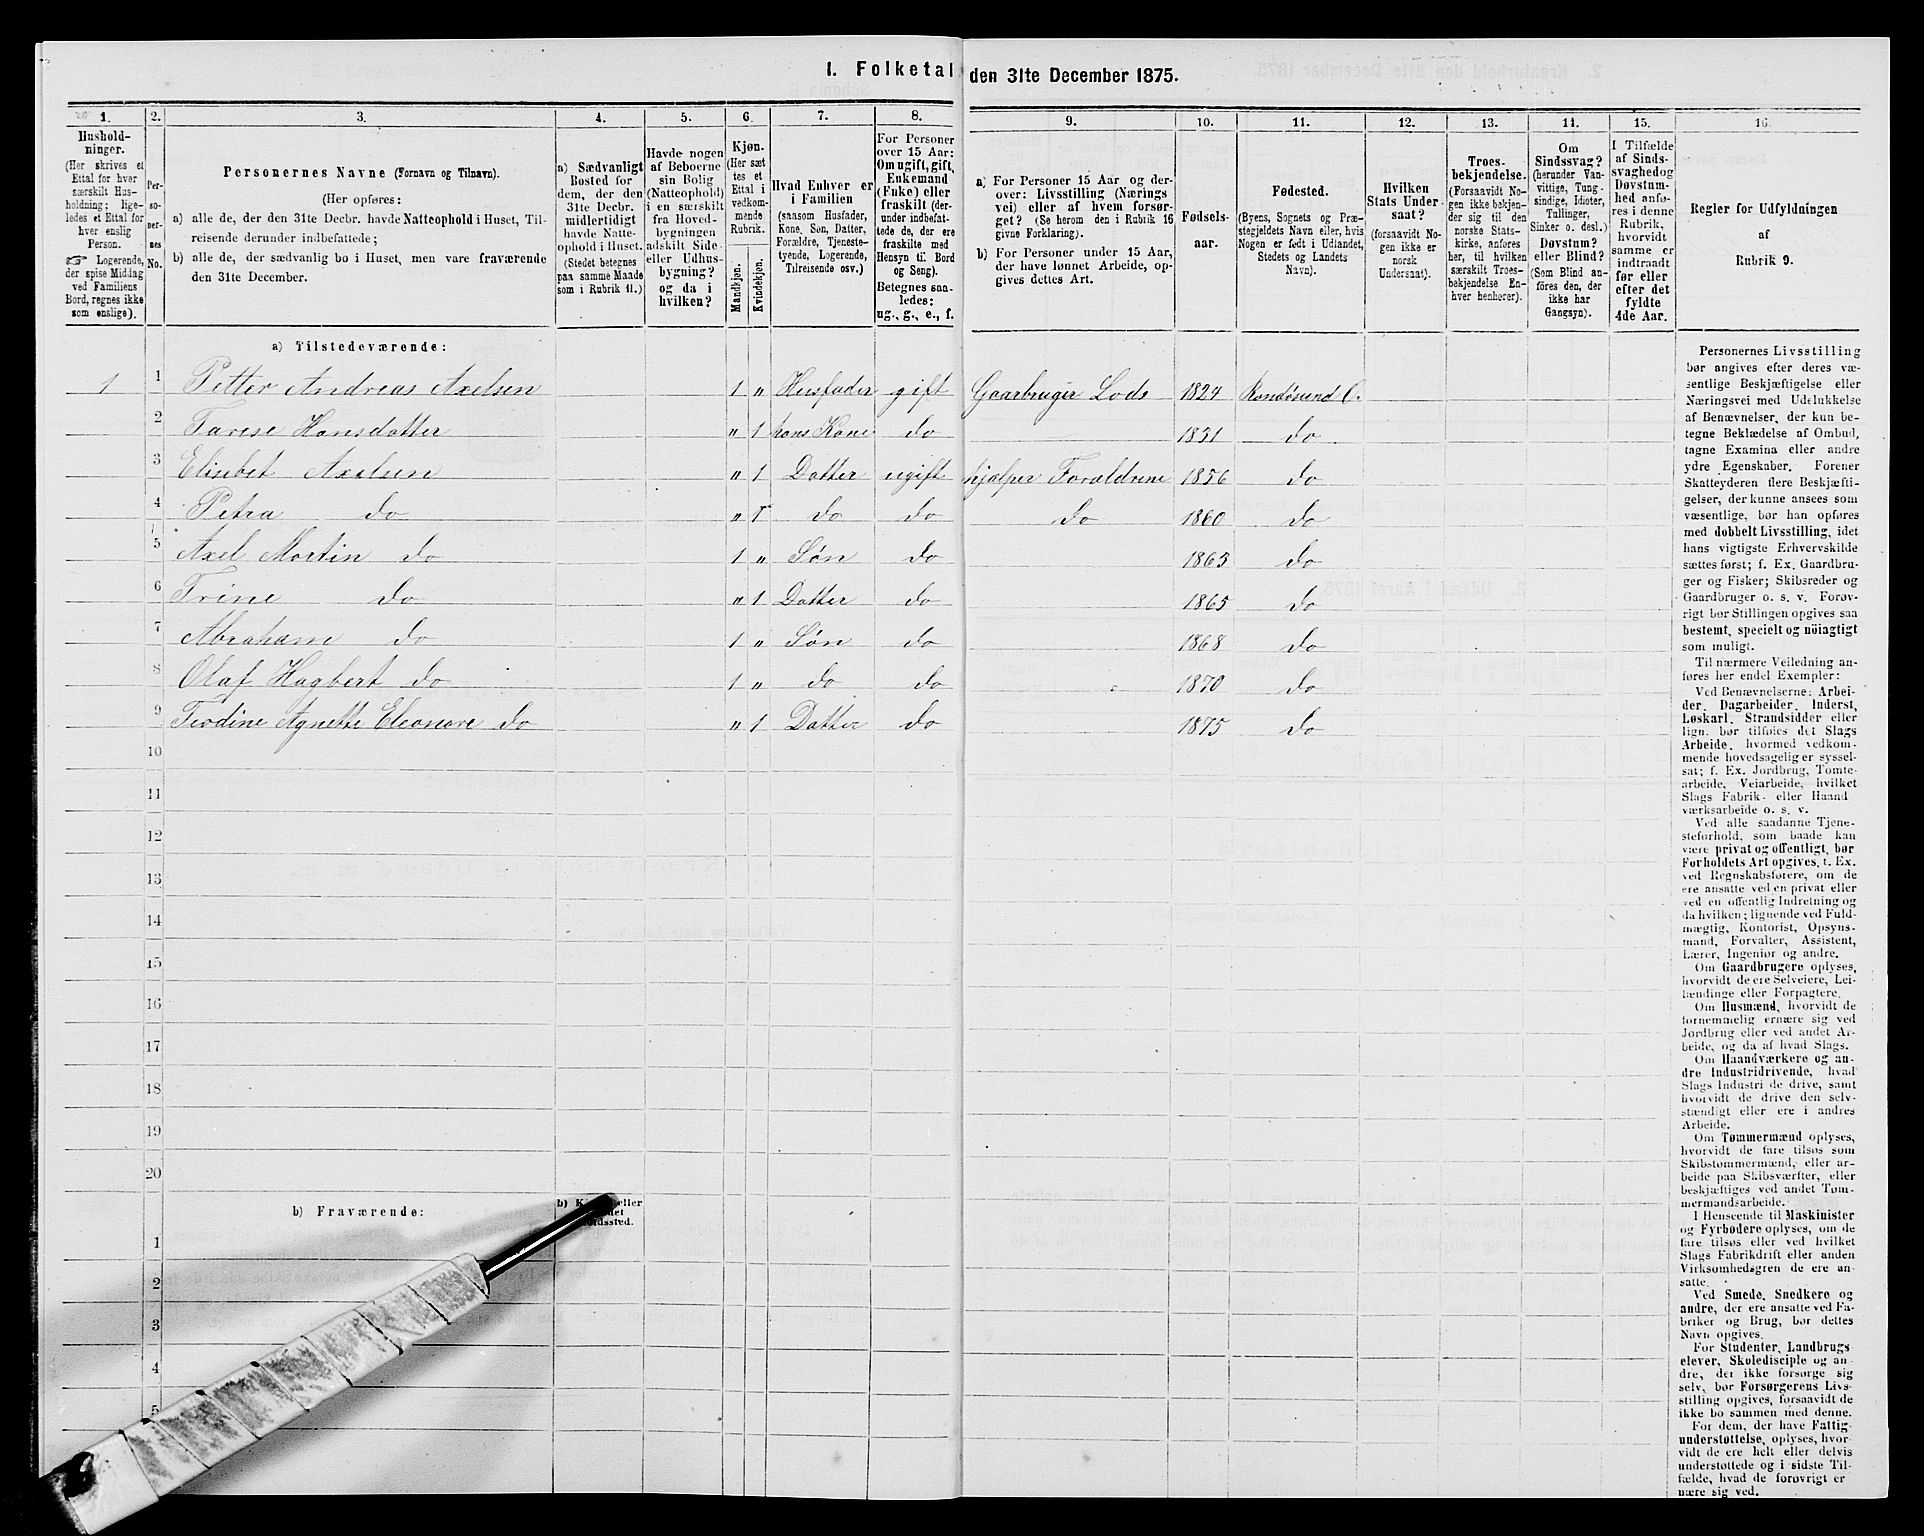 1. Folketal den 31te December 1875.
1. 2. 3. 4. 5. 6. 7. 8. 9. 10. 11. 12. 13. 11. 15. 16.
Hushold-
ninger.
(Her skrives et
Ettal for hver
særskilt Hus-
holdning; lige-
ledes et Ettal for
hver enslig
Person.
☞ Logerende,
der spise Middag
ved Familiens
Bord, regnes ikke
som enslige).
Per-
so-
ner-
nes
No.
Personernes Navne (Fornavn og Tilnavn).
(Her opføres:
a) alle de, der den 31te Decbr. havde Natteophold i Huset, Til-
reisende derunder indbefattede;
b) alle de, der sædvanlig bo i Huset, men vare fraværende
den 31te December.
a) Sædvanligt
Bosted for
dem, der den
31te Decbr.
midlertidigt
havde Natte-
ophold i Huset.
(Stedet betegnes
paa samme Maade
som i Rubrik 11.)
Havde nogen
af Beboerne
sin Bolig
(Natteophold)
i en særskilt
fra Hoved-
bygningen
adskilt Side-
eller Udhus-
bygning?
og da i
hvilken?
Kjøn.
(Her sæt
tes et
Ettal i
vedkom-
mende
Rubrik.
Mandkjøn.
Kvindekjøn.
Hvad Enhver er
i Familien
(saasom Husfader,
Kone, Søn, Datter,
Forældre, Tjeneste-
tyende, Logerende,
Tilreisende osv.)
For Personer
over 15 Aar:
Om ugift, gift,
Enkemand
(Enke) eller
fraskilt (der-
under indbefat-
tede de, der ere
fraskilte med
Hensyn til Bord
og Seng).
Betegnes saa-
ledes:
ug., g., e., f.
a) For Personer 15 Aar og der-
over: Livsstilling (Nærings
vei) eller af hvem forsør-
get? (Se herom den i Rubrik 16
givne Forklaring).
b) For Personer under 15 Aar,
der have lønnet Arbeide, op-
gives dettes Art.
Fødsels-
aar.
Fødested.
(Byens, Sognets og Præ-
stegjeldets Navn eller, hvis
Nogen er født i Udlandet,
Stedets og Landets
Navn).
Hvilken
Stats Under
saat?
(forsaavidt No-
gen ikke er
norsk
Undersaat).
Troes-
bekjendelse.
(Forsaavidt No-
gen ikke bekjen-
der sig til den
norske Stats-
kirke, anføres
her, til hvilken
særskilt Troes-
bekjendelse En-
hver henhører).
Om
Sindssvag?
(herunder Van-
vittige, Tung-
sindige, Idioter,
Tullinger,
Sinker o. desl.)
Døvstum?
eller Blind?
(Som Blind an-
føres den, der
ikke har
Gangsyn).
I Tilfælde
af Sinds-
svaghed og
Døvstum-
hed anfø-
res i denne
Rubrik,
hvorvidt
samme er
indtraadt
før eller
efter det
fyldte
4de Aar.
Regler for Udfyldningen
af
Rubrik 9.
a) Tilstedeværende:
1 1 Petter Andreas Axelsen 1 " Husfader gift Gaarbruger Lods 1824 Randøsund O.
2 Tarese Hansdatter " 1 hans Kone do 1831 do
3 Elisebet Axelsen " 1 Datter ugift hjælper Forældrene 1856 do
4 Petra do " 1 do do do 1860 do
5 Axel Martin do 1 " Søn do 1863 do
6 Trine do " 1 Datter do 1865 do
7 Abraham do 1 " Søn do 1868 do
8 Olaf Hagbert do 1 " do do 1870 do
9 Teodine Agnette Eleonore do " 1 Datter do 1875 do
10
11
12
13
14
15
16
17
18
19
20
b) Fraværende:
b) eller
1
2
3
4
5
Personernes Livsstilling
bør angives efter deres væ-
sentlige Beskjæftigelse eller
Næringsvei med Udelukkelse
af Benævnelser, der kun be-
tegne Beklædelse af Ombud,
tagne Examina eller andre
ydre Egenskaber. Forener
Skatteyderen flere Beskjæfti-
gelser, der kunne ansees som
væsentlige, bør han opføres
med dobbelt Livsstilling, idet
hans vigtigste Erhvervskilde
sættes først; f. Ex. Gaardbru-
ger og Fisker; Skibsreder og
Gaardbruger o. s. v. Forøv-
rigt bør Stillingen opgives saa
bestemt, specielt og nöiagtigt
som muligt.
Til nærmere Veiledning an-
føres her endel Exempler:
Ved Benævnelserne: Arbei-
der, Dagarbeider, Inderst,
Løskarl, Strandsidder eller
lign. bør tilføies det Slags
Arbeide, hvormed vedkom-
mende hovedsagelig er syssel-
sat; f. Ex. Jordbrug, Tomte-
arbeide, Veiarbeide, hvilket
Slags Fabrik- eller Haand-
værksarbeide o. s. v.
Ved alle saadanne Tjene-
steforhold, som baade kan
være privat og offentligt, bør
Forholdets Art opgives, t. Ex.
ved Regnskabsførere, om de
ere ansatte ved en privat eller
ved en offentlig Indretning og
da hvilken; lignende ved Fuld-
mægtig, Kontorist, Opsyns-
mand, Forvalter, Assistent,
Lærer, Ingeniør og andre.
Om Gaardbrugere oplyses,
hvorvidt de ere Selveiere, Lei-
lændinge eller Forpagtere.
Om Husmænd, hvorvidt de
fornemmelig ernære sig ved
Jordbrug eller ved andet Ar-
beide, og da af hvad Slags.
Om Haandværkere og an-
dre Industridrivende, hvad
Slags Industri de drive, samt
hvorvidt de drive den selv-
stændigt eller ere i andres
Arbeide.
Om Tømmermænd oplyses,
hvorvidt de fare tilsøs som
Skibstømmermænd, eller ar-
beide paa Skibsværfter, eller
beskjæftiges ved andet Tøm-
mermandsarbeide.
I Henseende til Maskinister
og Fyrbødere oplyses, om de
fare tilsøs eller ved hvilket
Slags Fabrikdrift eller anden
Virksomhedsgren de ere an-
satte.
Ved Smede, Snedkere og
andre, der ere ansatte ved Fa-
briker og Brug, bør dettes
Navn opgives.
For Studenter, Landbrugs
elever, Skoledisciple og an-
dre, der ikke forsørge sig
selv, bør Forsørgerens Livs-
stilling opgives, forsaavidt de
ikke bo sammen med denne.
For dem, der have Fattig
understøttelse, oplyses, hvor-
vidt de ere helt eller delvis
understøttede og i sidste Til-
fælde, hvad de forøvrigt er
nære sig ved.